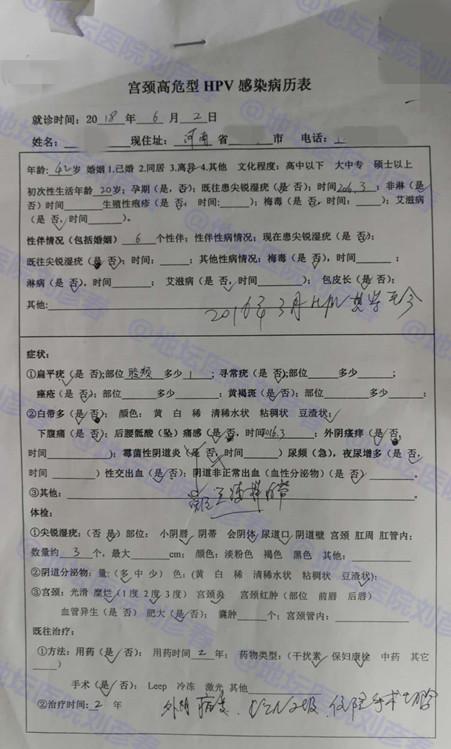 宫颈高危型 HPV 感染病历表
就诊时间：2018 年 6 月 2 日
姓名： 现住址：河南 省 市 电话：
年龄：42岁 婚姻 1.已婚 2.同居 3.离异 4.其他 文化程度：高中以下 大中专 硕士以上
初次性生活年龄 20岁；孕期（是，否）；既往患尖锐湿疣（是 否）；时间2016.3；非淋（是
否）时间 生殖性疱疹（是 否， 时间： ）；梅毒（是 否，时间： ）；艾滋病
（是 否，时间 ）。
性伴情况（包括婚姻） 6 个性伴；性伴性病情况：现在患尖锐湿疣（是 否）；
既往尖锐湿疣（是 否）；时间： ；其他性病情况：梅毒（是 否），时间 ；
淋病（是 否），时间 ； 艾滋病（是 否，时间 ）； 包皮长（是 否）；
其他： 2016年3月HPV 至今
症状：
①扁平疣（是 否）；部位 脸颊 多少 1 ；寻常疣（是 否）；部位 多少 ；
痤疮（是 否）；部位 多少 ；黄褐斑（是 否）；部位 多少 ；
②白带多（是 否）： 颜色： 黄 白 稀 清稀水状 粘稠状 豆渣状；
下腹痛（是 否）；后腰骶酸（坠）痛感（是 否，时间2016.3 ；外阴瘙痒（是 否，
时间 ）；霉菌性阴道炎（是 否，时间 ）尿频（急），夜尿增多（是 否，
时间 ）性交出血（是 否）；阴道非正常出血（血性分泌物）（是 否） 。
③其他： 豆渣样白带 。
体检：
①尖锐湿疣：（否 是）部位： 小阴唇 阴蒂 会阴体 尿道口 阴道壁 宫颈 肛周 肛管内；
数量约 3 个，最大 cm； 颜色：淡粉色 褐色 黑色 其他：
②阴道分泌物：量：（多 中 少） 色：（黄 白 稀 清稀水状 粘稠状 豆渣状）；
③宫颈：光滑 糜烂（1 度 2 度 3 度） 宫颈炎 宫颈红肿（部位 前唇 后唇）
血管异生（是 否） 肥大（是 否）； 囊肿 个；宫颈管内：
既往治疗：
①方法：用药（是 否）； 用药时间 2 年； 药物类型：（干扰素 保妇康栓 中药 其它
）
手术（是 否）： Leep 冷冻 激光 其他
②治疗时间：2 年 外阴 CIN2级